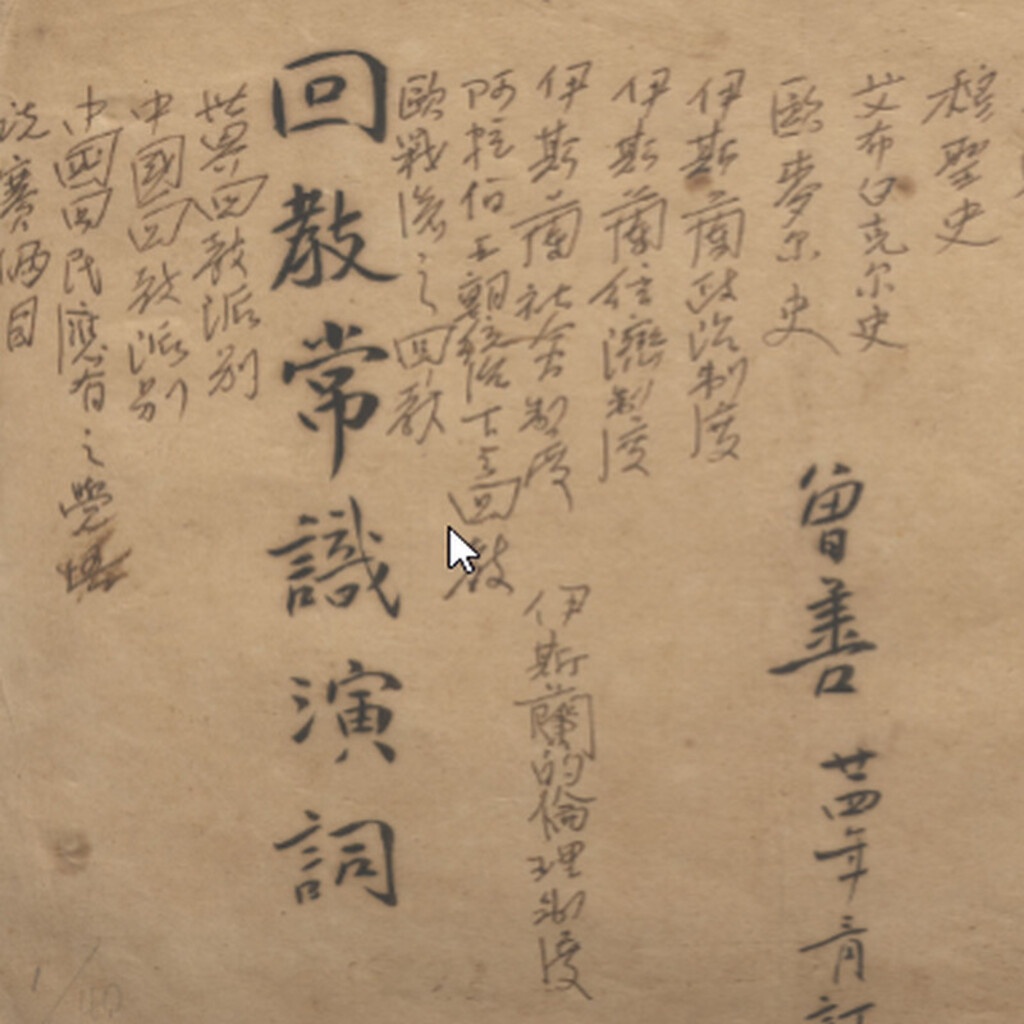 穆聖史
艾布白克尔史
歐麥尔史
曾善 廿四年三月訂
伊斯蘭政治制度
伊斯蘭經濟制度
伊斯蘭社會制度
伊斯蘭的倫理制度
阿拉伯王朝統治下之回教
歐戰後之回教
回教常識演詞
世界回教派別
中國回教派別
中國回民應有之覺悟
賽俩目
1/180